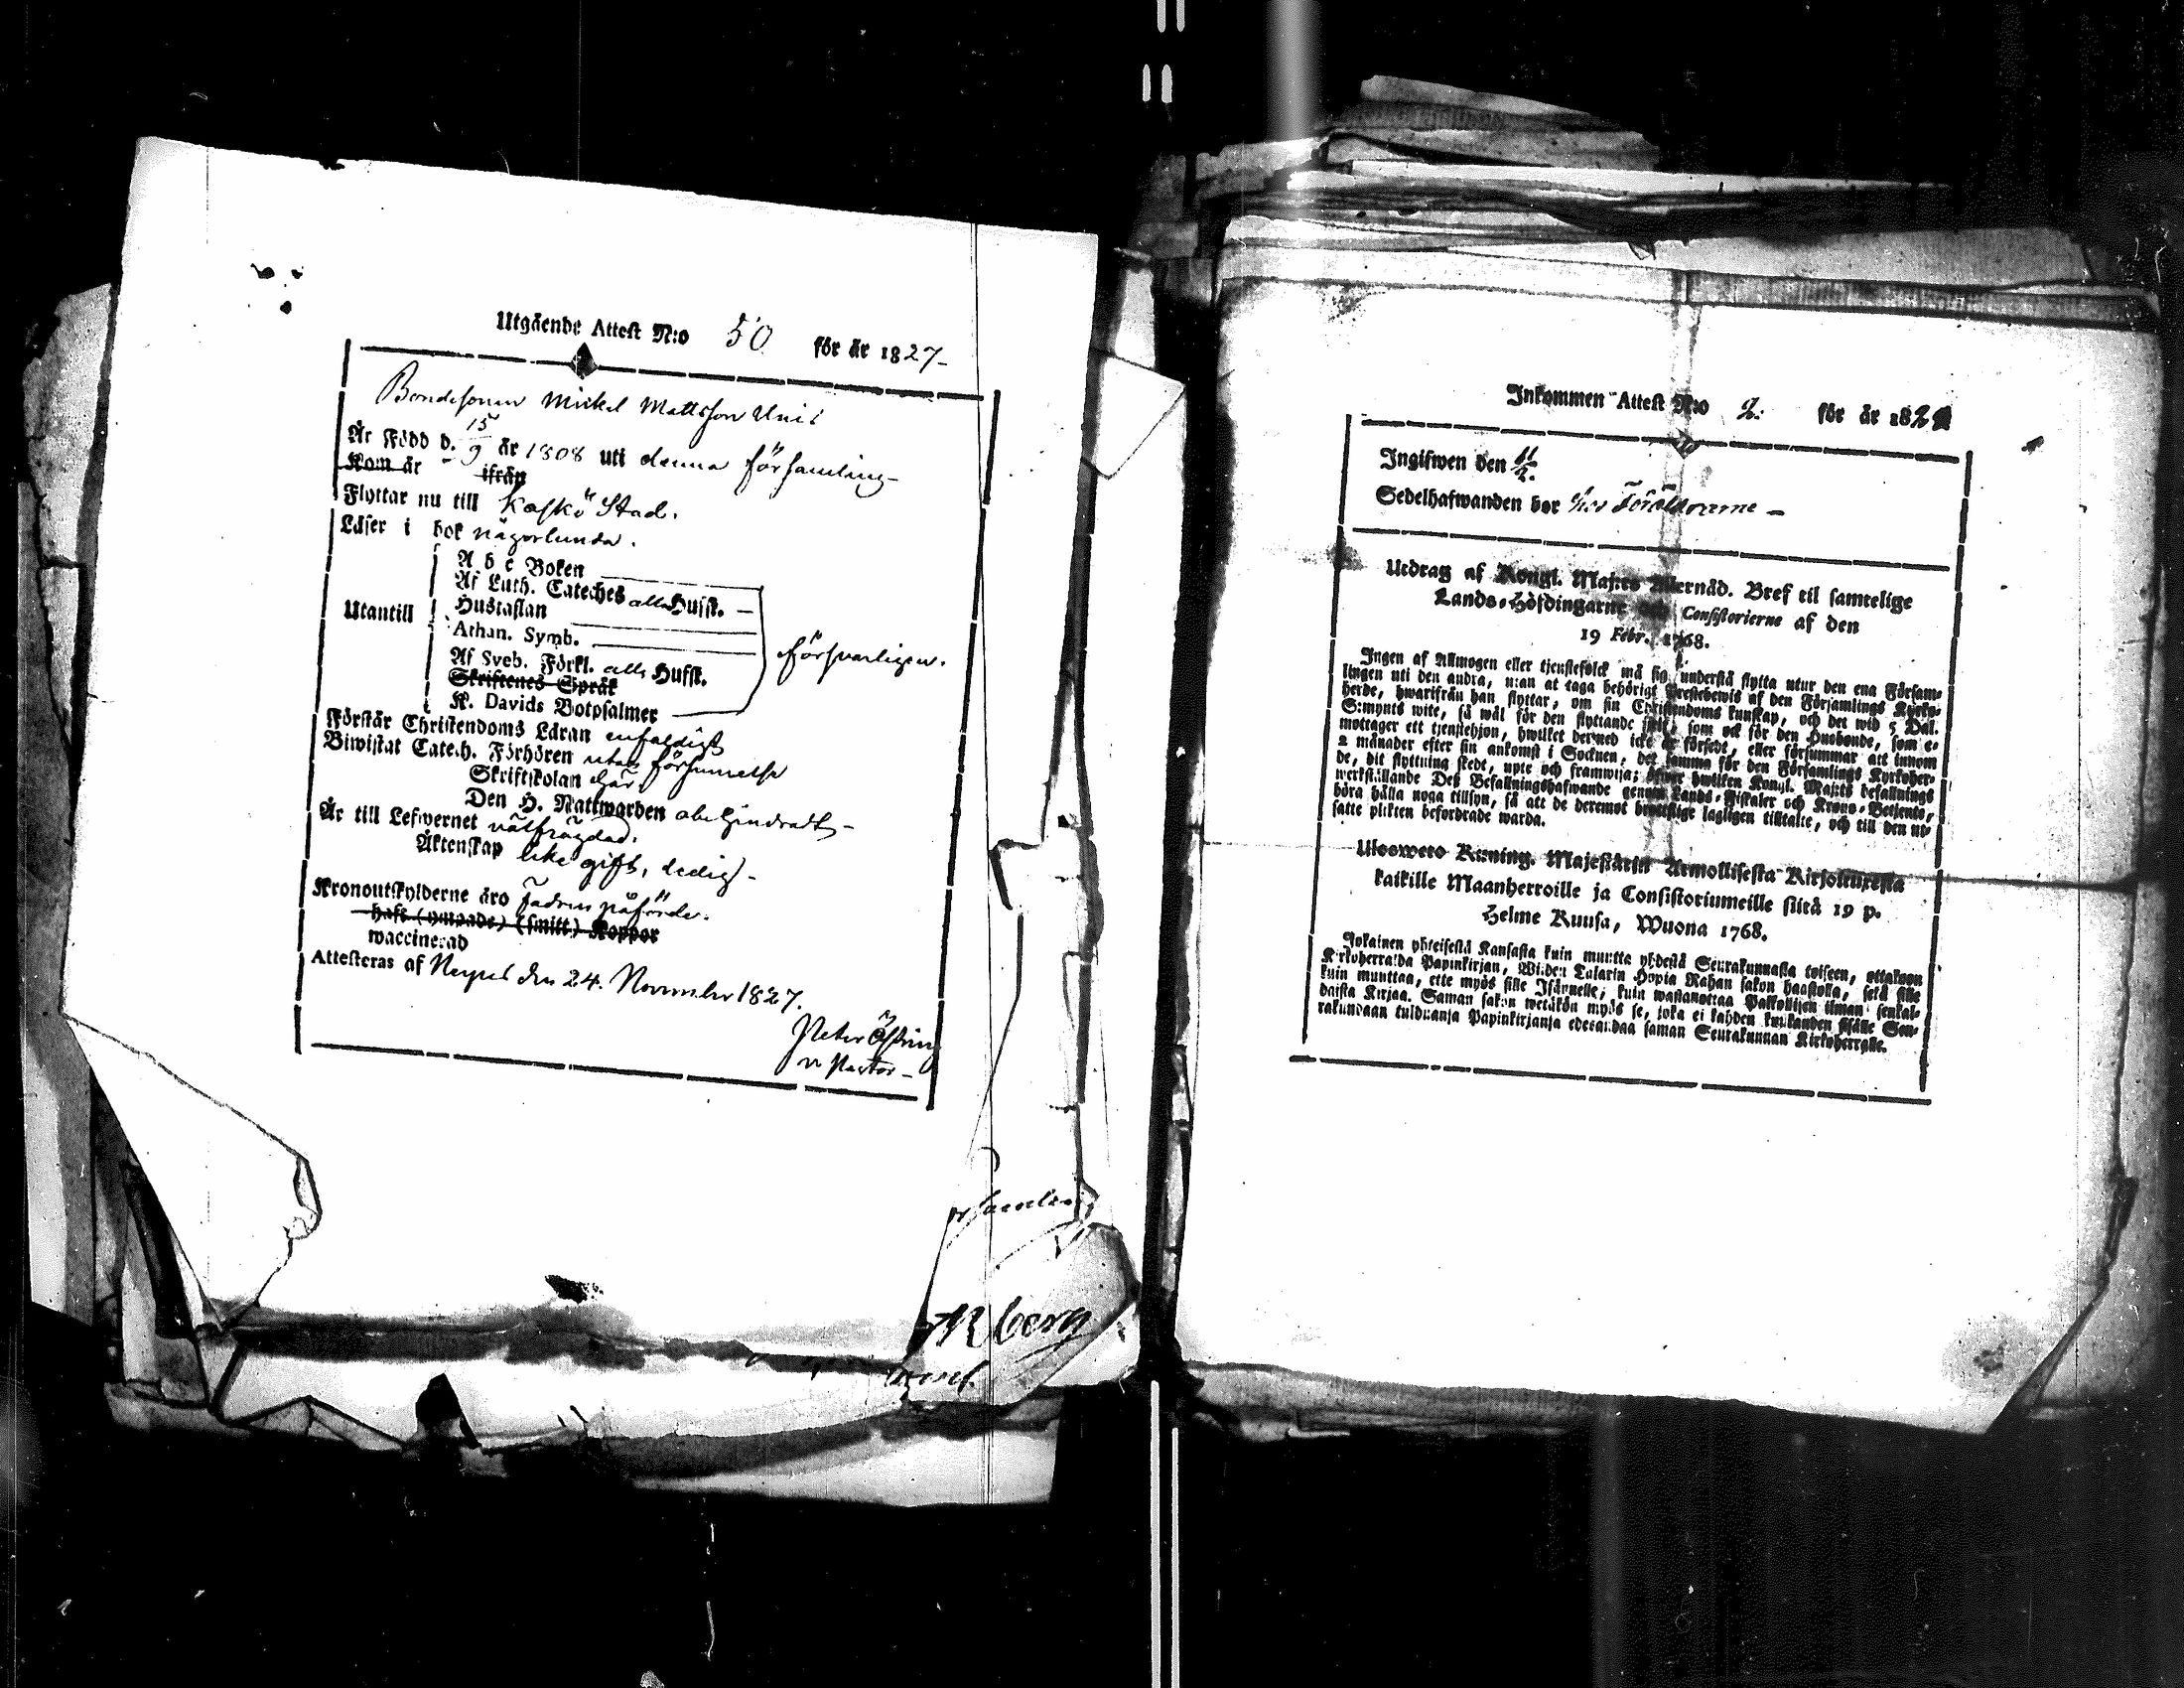 Utgående Attest N:o 50 för år 1827-
Bondesonen Mickel Mattsson Unis
Är Född d. 15/9 år 1808 uti denna församling-
Kom år ifrån
Flyttar nu till Kaskö Stad.
Läser i bok någorlunda.
A b c Boken
Af Luth. Cateches alla Hufst. –
Utantill
Hustaflan
Athan. Symb.
försvarligen.
Af Sveb. Förkl. alla Hufst.
Skriftenes Språk
K. Davids Botpsalmer
Förstår Christendoms Läran enfaldigt
Biwistat Catech. Förhören utan försummelse
Skriftskolan här,
Den H. Nattwarden obehindradt-
Är till Lefwernet välfrägdad.
Äktenskap icke gift, ledig-
Kronoutskylderne äro Fadren påförde.
haft (ympade) (smitt) Koppor
waccinerad
Attesteras af Nerpes den 24. November 1827.
Peter
v. Pastor –
berg
Inkommen Attest N:o 2. för år 182
Ingifwen den 11/2.
Sedelhafwanden bor hos Föräldrarne –
Utdrag af Kongl. Maj:ts Allernåd. Bref til samtelige
Lands-Höfdingarne och Consistorierne af den
19 Febr. 1768.
Ingen af Allmogen eller tjenstefolck må sig understå flytta utur den ena Försam-
lingen uti den andra, utan at taga behörigt Prestebewis af den Församlings Kyrko-
herde, hwarifrån han flyttar, om sin Christendoms kunskap, och det wid 5 Dal.
S:mynts wite, så wäl för den flyttande sjelf, som ock för den Husbonde, som e-
mottager ett tjenstehjon, hwilket dermed icke är försedt, eller försummar att innom
2 månader efter sin ankomst i Socknen, det samma för den Församlings Kyrkoher-
de, dit flyttning skedt, upte och framwisa; öfwer hwilken Kongl. Maj:ts befallnings
werkställande Deß Befallningshafwande genom Lands-Fiskaler och Krono-Betjente,
böra hålla noga tillsyn, så att de deremot brottslige lagligen tilltalte, och till den ut-
satte plikten befordrade warda.
Uloswero Kuning. Majestätin Armollisesta Kirjoituxesta
kaikille Maanherroille ja Consistoriumeille siitä 19 p.
Helme Kuusa, Wuona 1768.
Jokainen yhteisestä Kansasta kuin muutta yhdestä Seurakunnasta toiseen, ottakoon
Kirkoherralda Papinkirjan, Wiiden Talarin Hopia Rahan sakon haastolla, sekä sille
kuin muuttaa, ette myös sille Isännelle, kuin wastanottaa Palkollisen ilman senkal-
daista Kirjaa. Saman sakon wetäkön myös se, joka ei kahden kuukauden sisälle Seu-
rakundaan tulduanja Papinkirjanja edesandaa saman Seurakunnan Kirkoherralle.